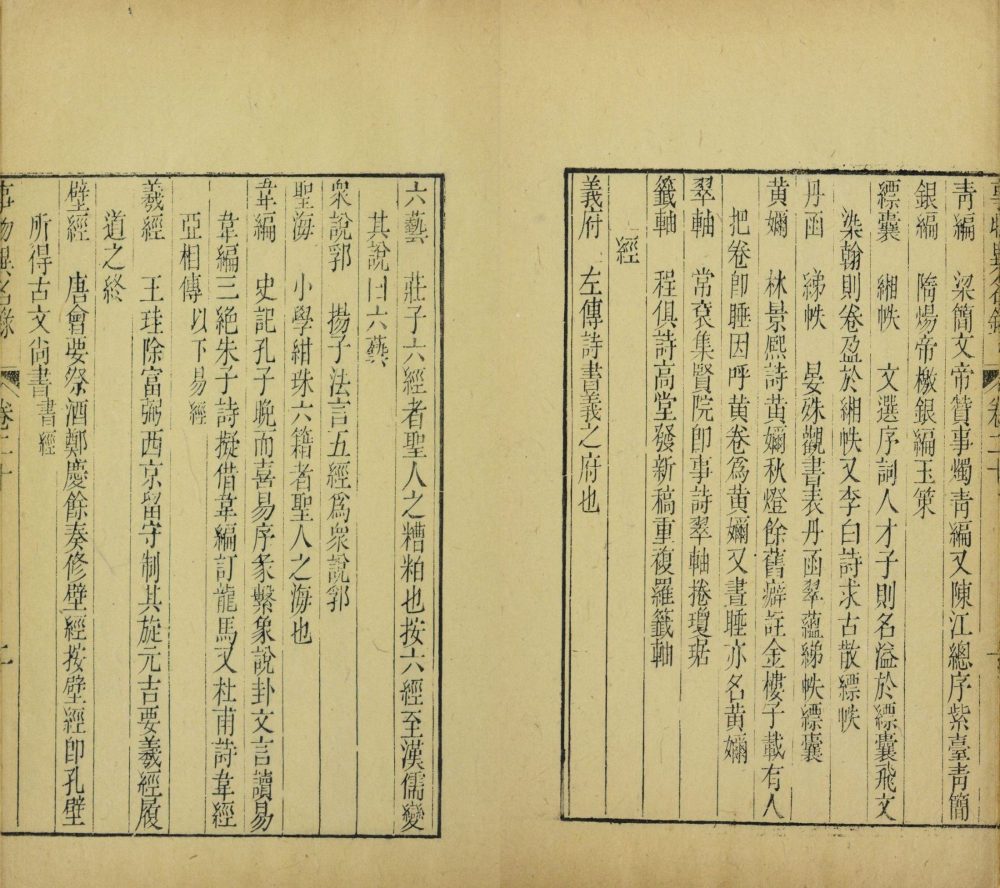 事物異名錄
卷二十
靑編 梁簡文帝贊事燭靑編又陳江總序紫臺靑簡
銀編 隋煬帝檄銀編玉策
縹囊 緗帙 文選序詞人才子則名溢於縹囊飛文
染翰則卷盈於緗帙又李白詩求古散縹帙
丹函 綈帙 晏殊觀書表丹函翠蘊綈帙縹囊
黃嬭 林景熈詩黃嬭秋燈餘舊癖註金樓子載有人
把卷卽睡因呼黃卷爲黃嬭又晝睡亦名黃嬭
翠軸 常袞集賢院卽事詩翠軸捲瓊琚
籖軸 程俱詩高堂發新稿重複羅籖軸
經
義府 左傳詩書義之府也
六藝 莊子六經者聖人之糟粕也按六經至漢儒變
其說曰六藝
衆說郛 揚子法言五經爲衆說郛
聖海 小學紺珠六籍者聖人之海也
韋編 史記孔子晚而喜易序彖繫象說卦文言讀易
韋編三絶朱子詩擬借韋編訂龍馬又杜甫詩韋經
亞相傳 以下易經
羲經 王珪除富弼西京留守制其旋元吉要羲經履
道之終
壁經 唐會要祭酒鄭慶餘奏修壁經按壁經卽孔壁
所得古文尚書 書經
事物異名錄 卷二十 二